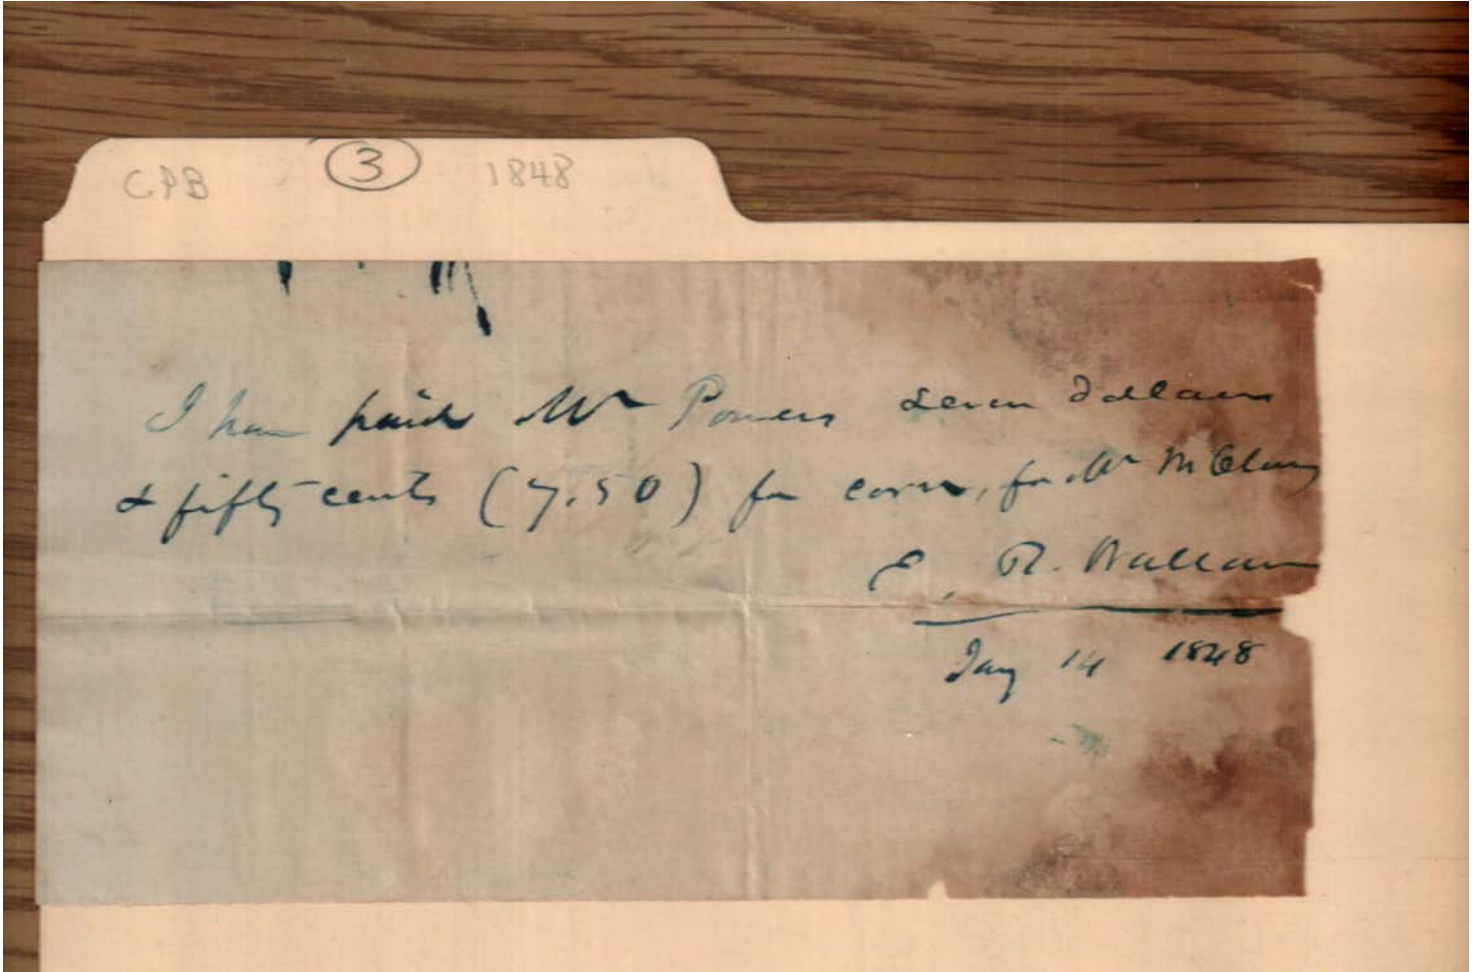 CPB 3 1848
I have paid Mr Powers seven dollars
& fifty cents (7.50) for corn, for Mr McClung
E. R. Wallace
Jany 14 1848